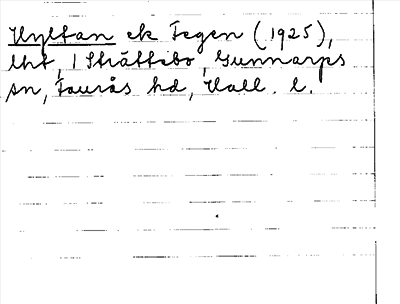 Hyltan ek Fegen (1925),
lht, 1 Skräddebo, Gunnarps
sn, Faurås hd, Hall. l.